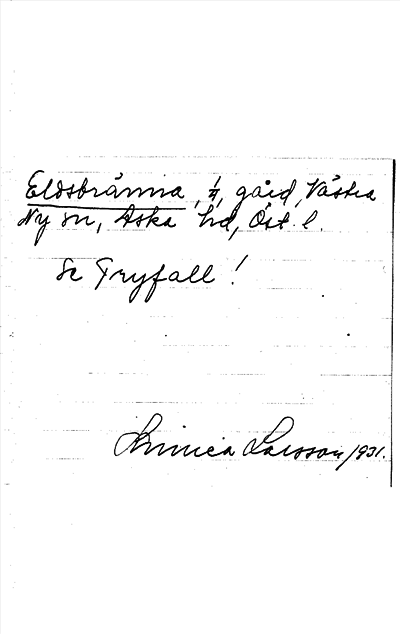 Eldsbränna, 1/4, gård, Västra
Ny sn, Aska hd, Öst. l.
Se Fryfall!
Linnea Larsson 1931.